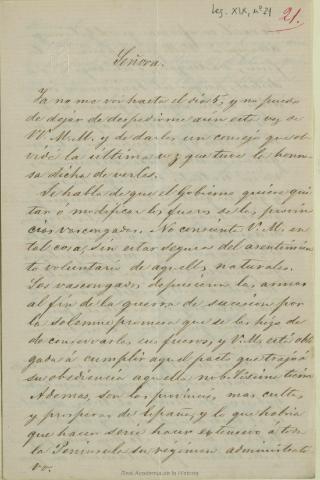 Leg. XIX, nº 21
21.
Señora.
Ya no me voy hasta el dia 5, y no puedo
de dejar de despedirme aún esta vez de
VV. M.M. y de darles un consejo que ol-
vidé la última vez que tuve la honro-
sa dicha de verles.
Se habla de que el Gobierno quiere qui-
tar ó modificar los fueros de las provin-
cias vascongadas. No consienta V. M. en
tal cosa, sin estar segura del asentimien-
to voluntario de aquellos naturales.
Los vascongados depusieron las armas
al fin de la guerra de sucesion por
la solemne promesa que se les hizo de
de conservarles sus fueros, y V. M. está obli-
gada á cumplir aquel pacto que trajo á
su obediencia aquella nobilísima tierra
Ademas, son las provincias mas cultas
y prosperas de España, y lo que habria
que hacer seria hacer extensivo á toda
la Peninsula su régimen administrati-
vo.
Real Academia de la Historia